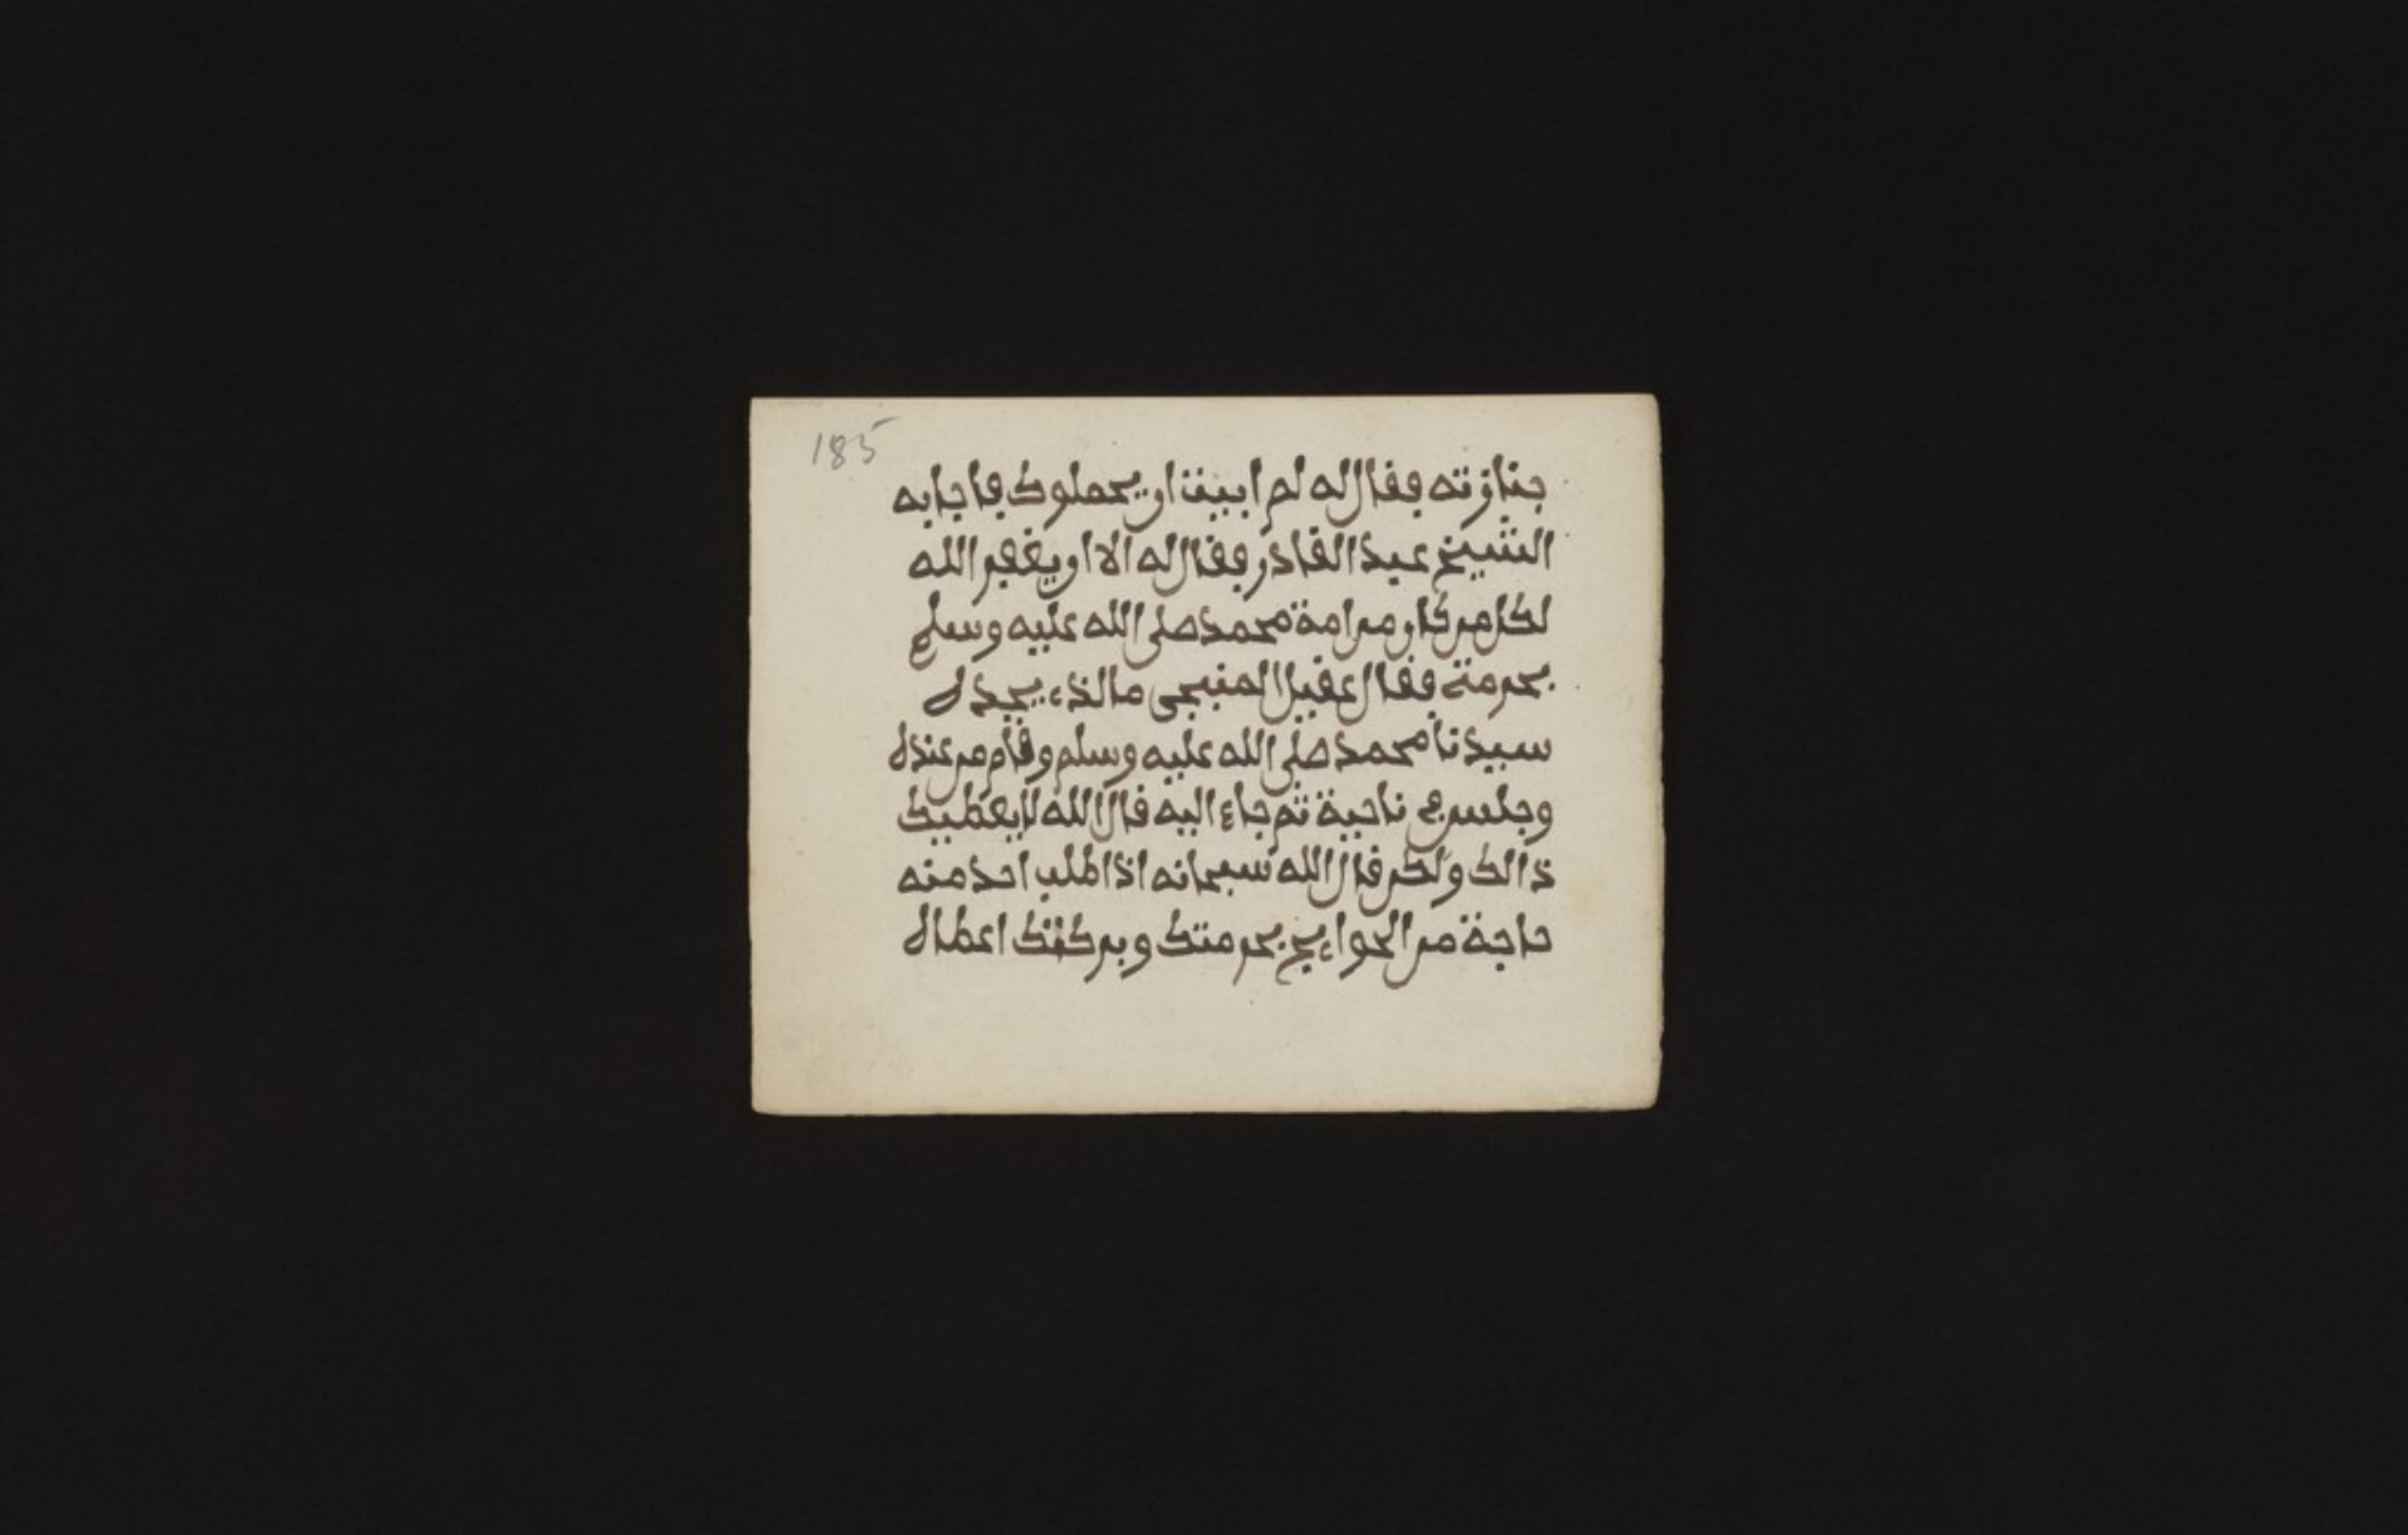 185
جنازته فقال له لم ابيت ان يحملوك فاجابه
الشيخ عبد القادر فقال له الا ان يغفر الله
لكل من كان من امة محمد صلى الله عليه وسلم
بحرمته فقال عقيل المنبجى ما الذي يجد له
سيدنا محمد صلى الله عليه وسلم وقام من عنده
وجلس في ناحية ثم جاء اليه قال الله لا يعطيك
ذالك ولكن قال الله سبحانه اذا طلب احد منه
حاجة من الحوايج بحرمتك وبركتك اعطاه